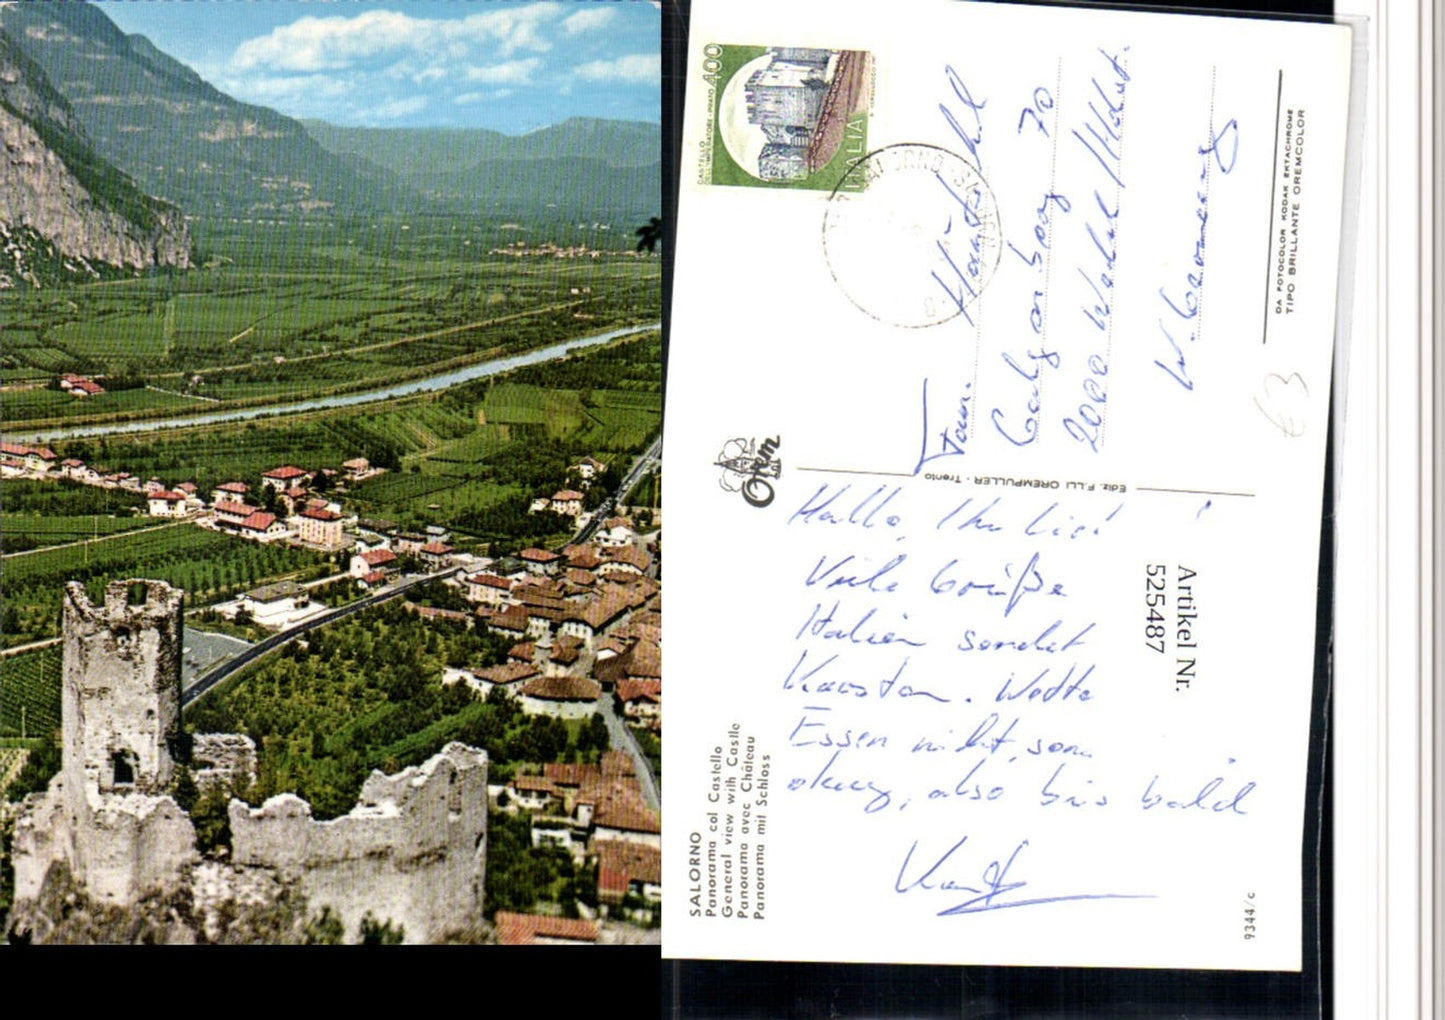 SALORNO
Panorama col Castello
General view with Castle
Panorama avec Château
Panorama mit Schloss
Hallo, Ihr
Viele Grüße
Italien sendet
Karsten. Wetter
Essen nicht, son.
okay, also bis bald
Ediz. F.LLI OREMPULLER - Trento
Orem
CASTELLO
L'IMPERATORE - PRATO
400
ITALIA
SALORNO
Fam.
70
2000 Wedel/Holst.
W. Germany
DA FOTOCOLOR KODAK EKTACHROME
TIPO BRILLANTE OREMCOLOR
€3
Artikel Nr.
525487
9344/c